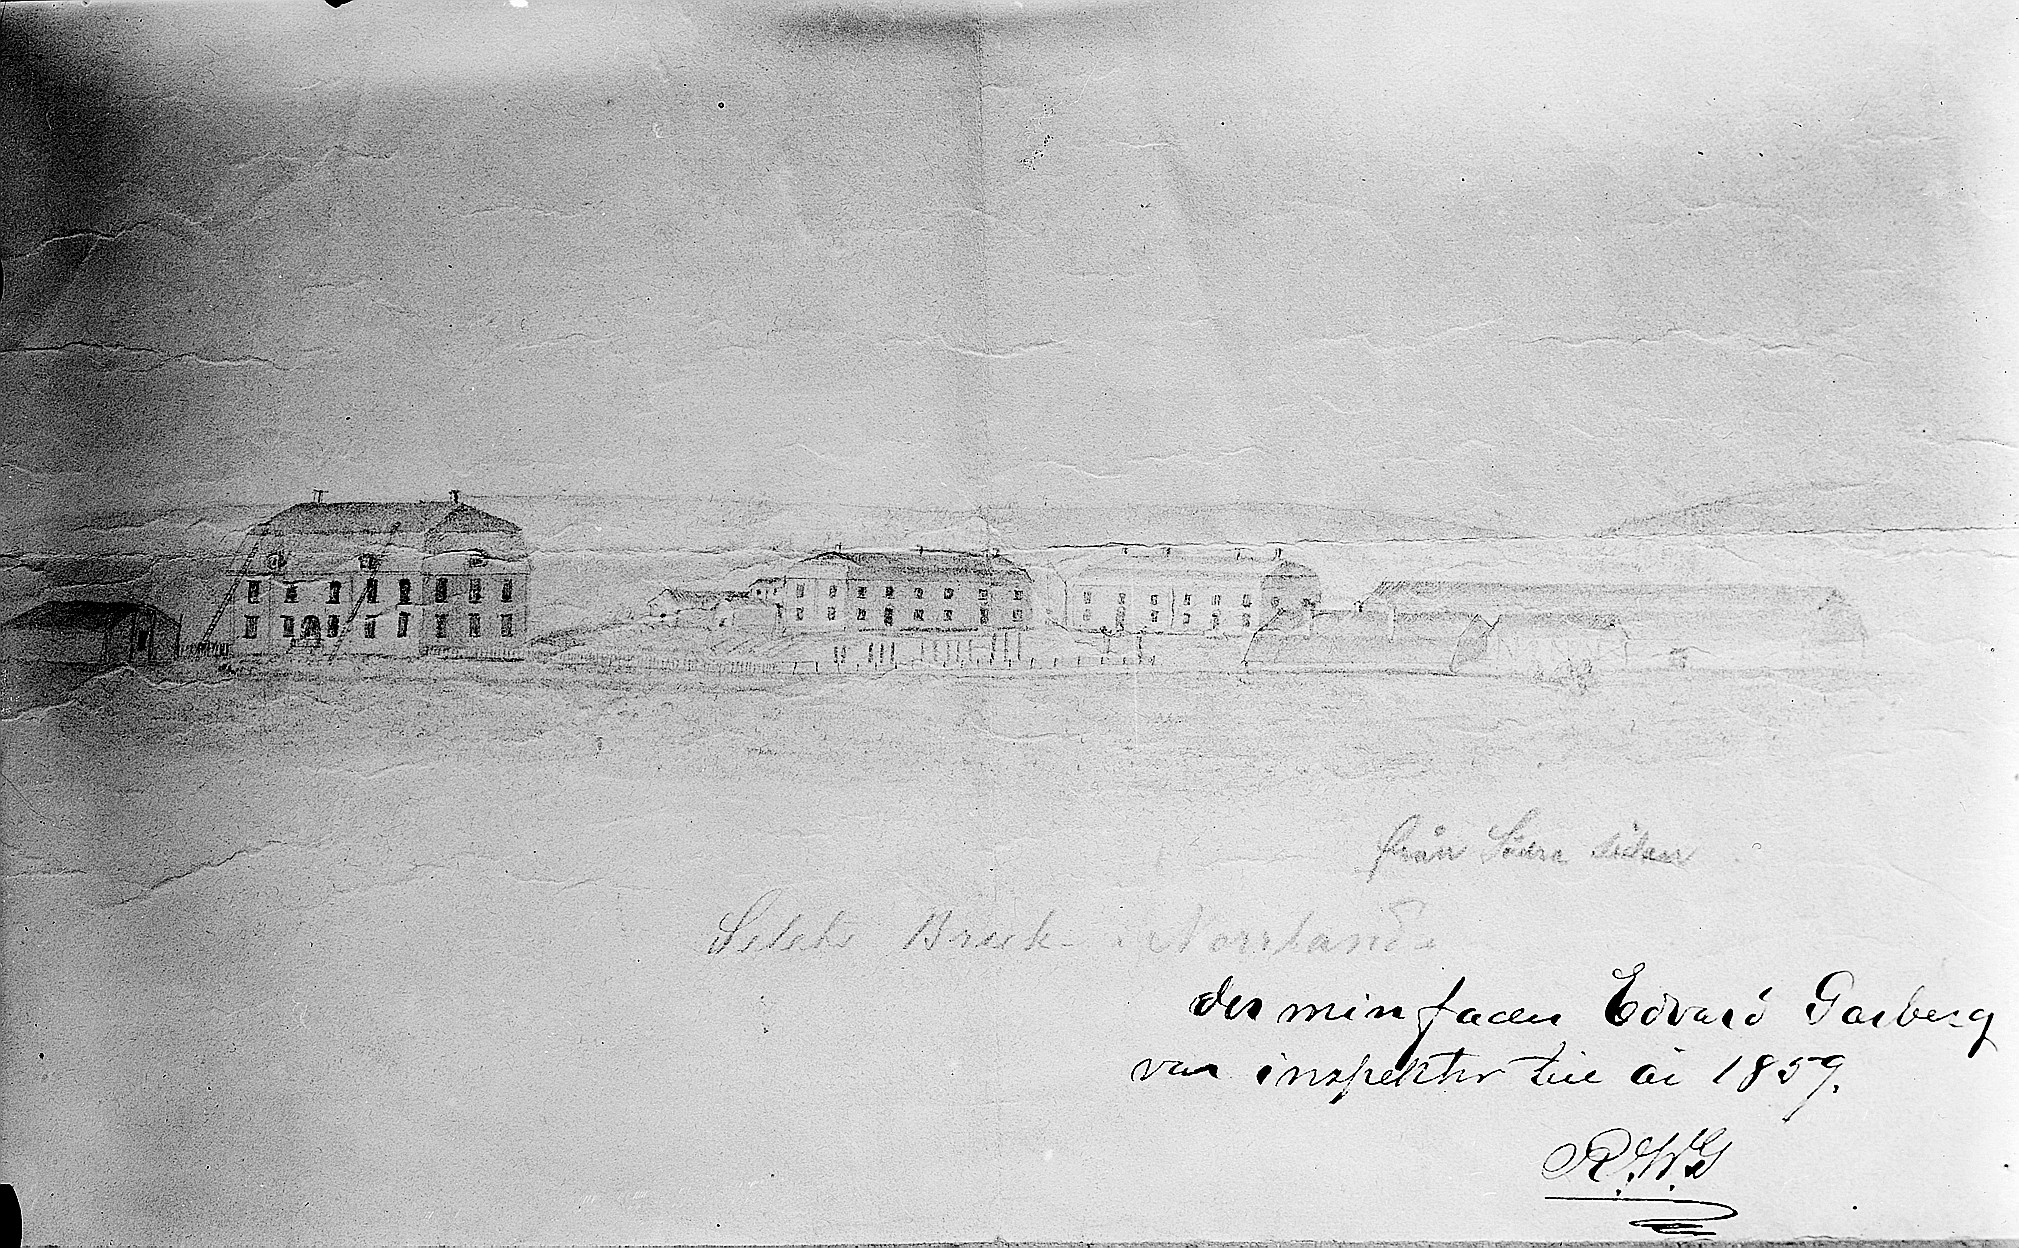 från Södra sidan
Selets Bruk - Norrland.
der min fader Edvard Garberg
var inspektor till år 1859.
R.W.G